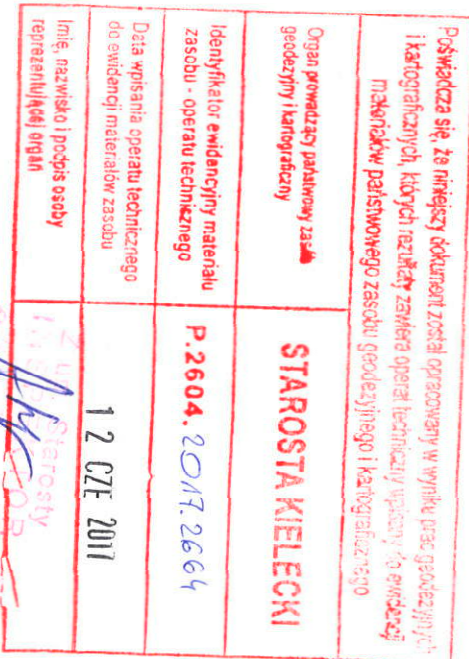 Poświadcza się, że niniejszy dokument został opracowany w wyniku prac geodezyjnych
i kartograficznych, których rezultaty zawiera operat techniczny wpisany do ewidencji
materiałów państwowego zasobu geodezyjnego i kartograficznego
Organ prowadzący państwowy zasób
geodezyjny i kartograficzny
STAROSTA KIELECKI
Identyfikator ewidencyjny materiału
zasobu - operatu technicznego
P.2604.2017.2664
Data wpisania operatu technicznego
do ewidencji materiałów zasobu
12 CZE 2017
Imię, nazwisko i podpis osoby
reprezentującej organ
Z up. Starosty